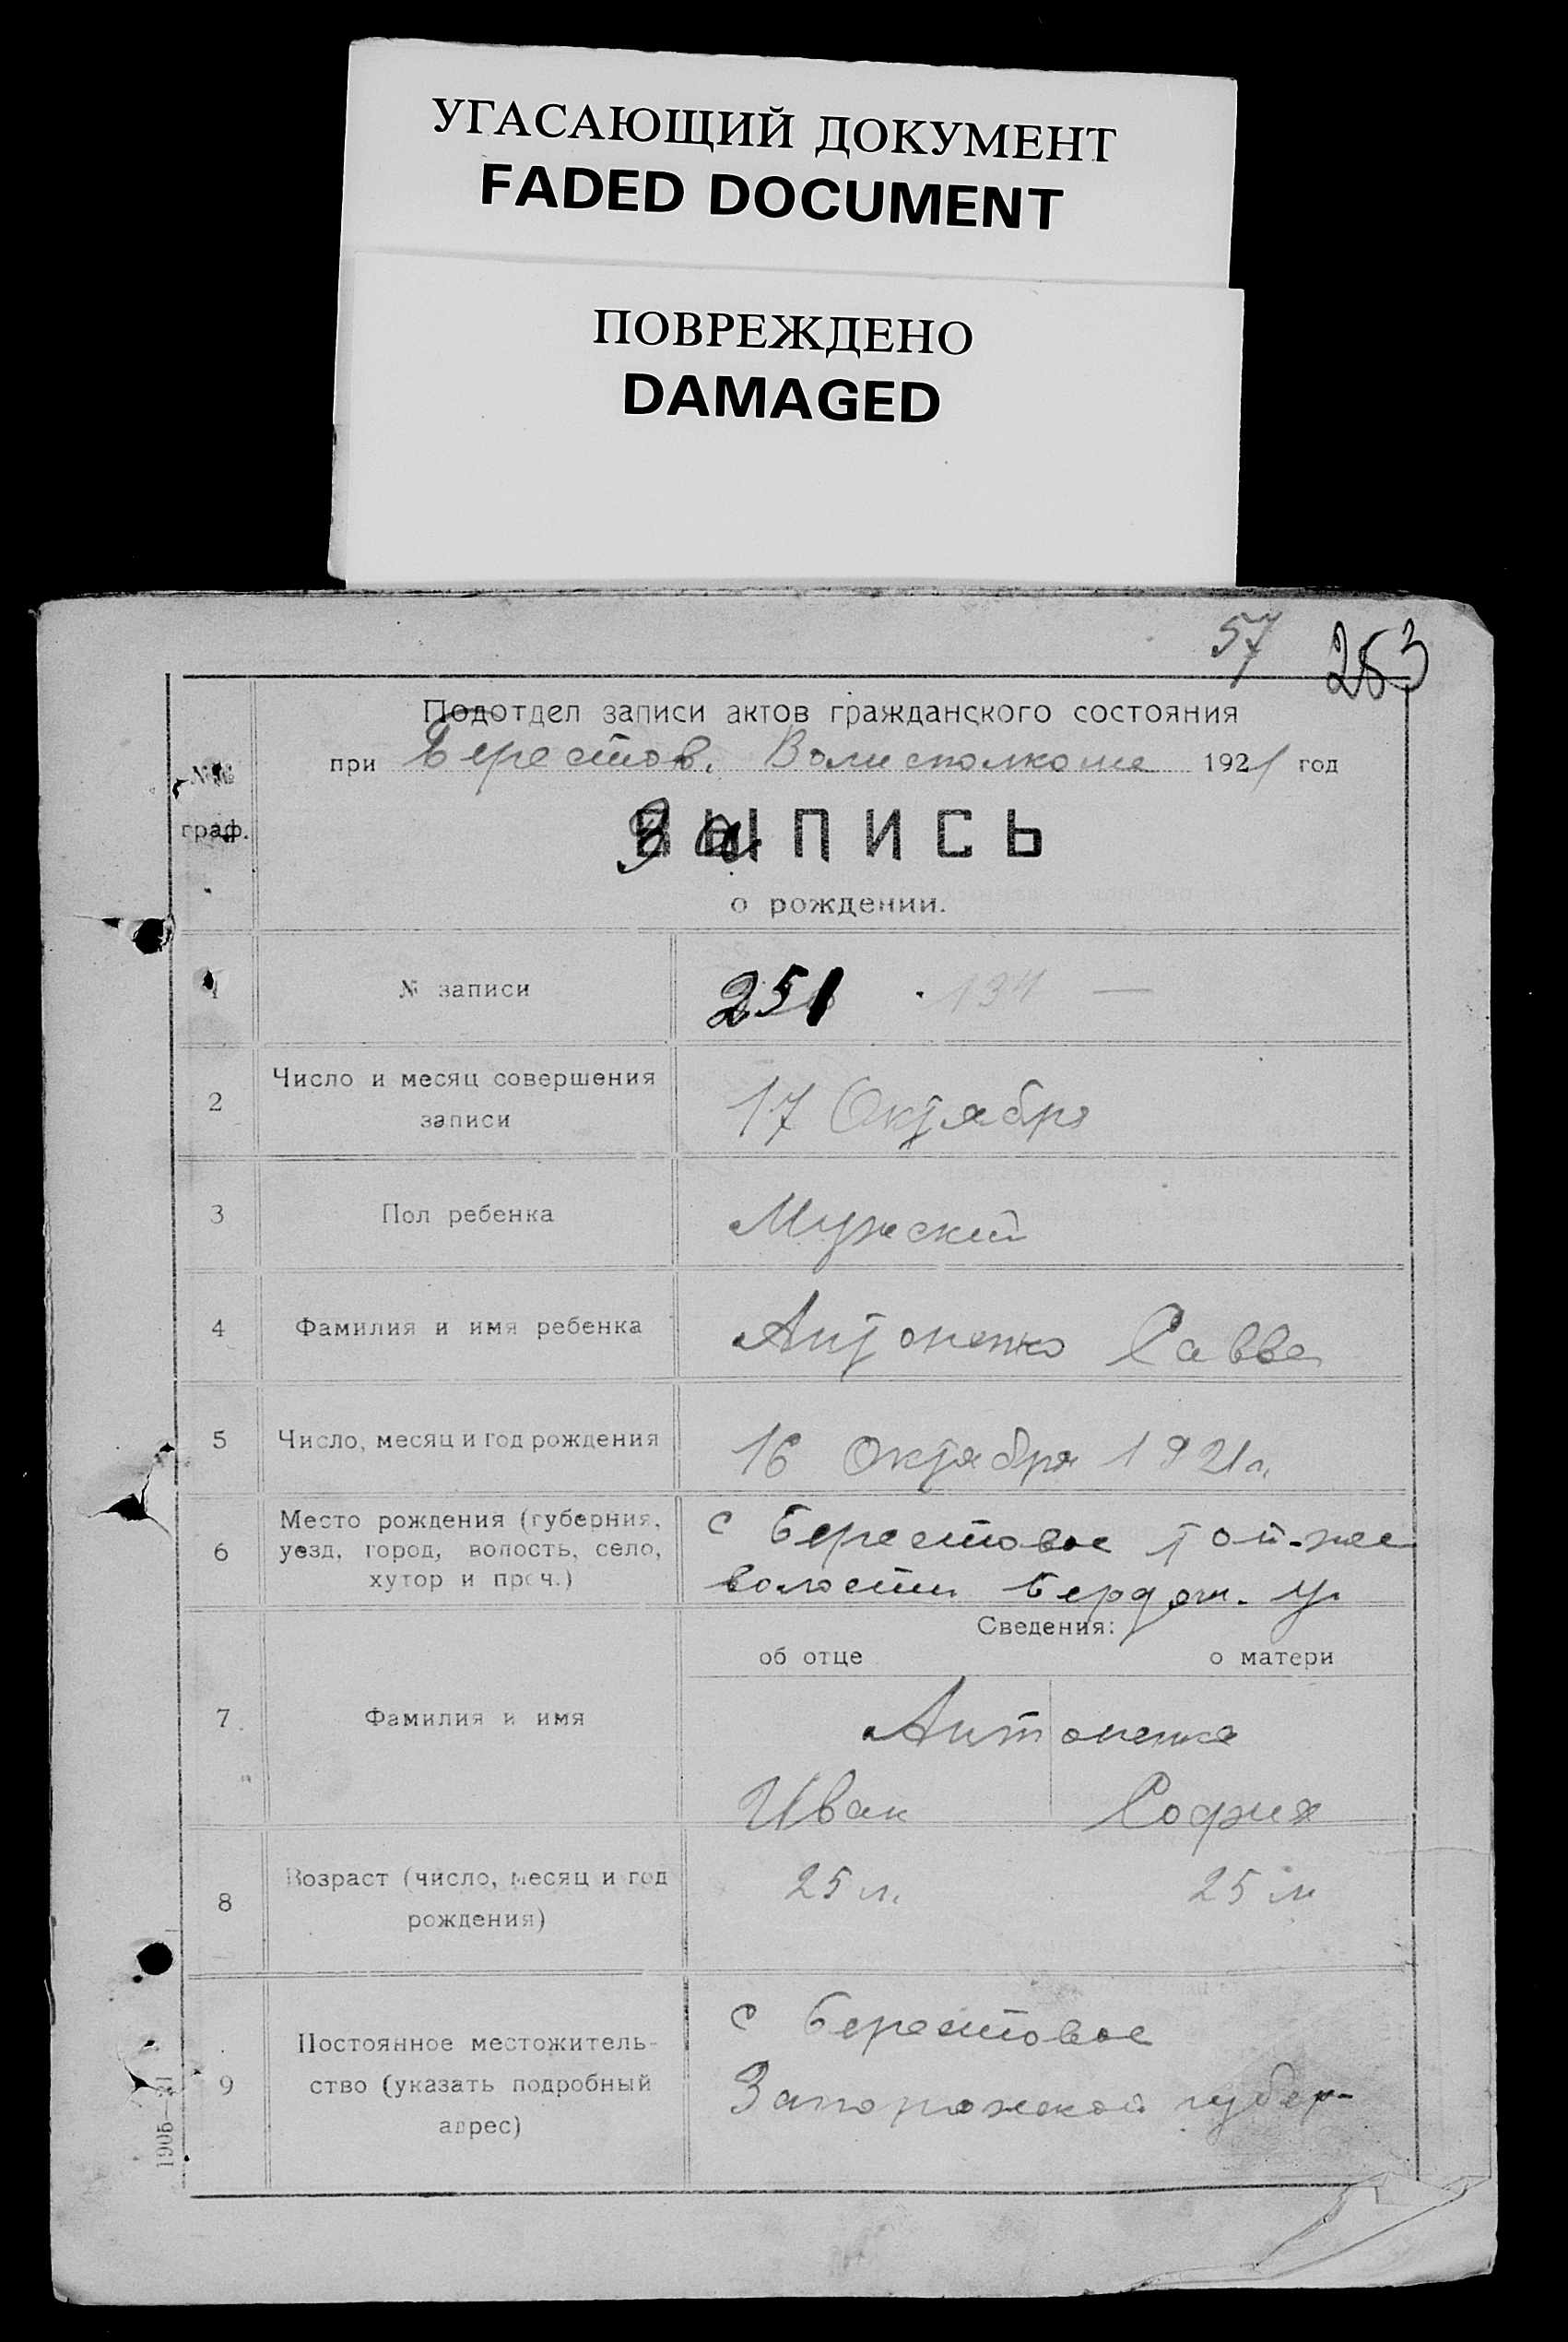 УГАСАЮЩИЙ ДОКУМЕНТ
FADED DOCUMENT
ПОВРЕЖДЕНО
DAMAGED
57 253
Подотдел записи актов гражданского состояния
при Берестов. Волисполкоме 1921 год
№№
граф.
За ВЫПИСЬ
о рождении.
1 № записи 251 134 —
2 Число и месяц совершения
записи
17 Октября
3 Пол ребенка Мужский
4 Фамилия и имя ребенка Антоненко Савва
5 Число, месяц и год рождения 16 Октября 1921 г.
6 Место рождения (губерния,
уезд, город, волость, село,
хутор и проч.)
с Берестовое той-же
волости Бердян. у.
Сведения:
об отце о матери
7 Фамилия и имя
Антоненко
Иван София
8 Возраст (число, месяц и год
рождения)
25 л. 25 л
9 Постоянное местожитель-
ство (указать подробный
адрес)
с Берестовое
Запорожской губер-
1905—21